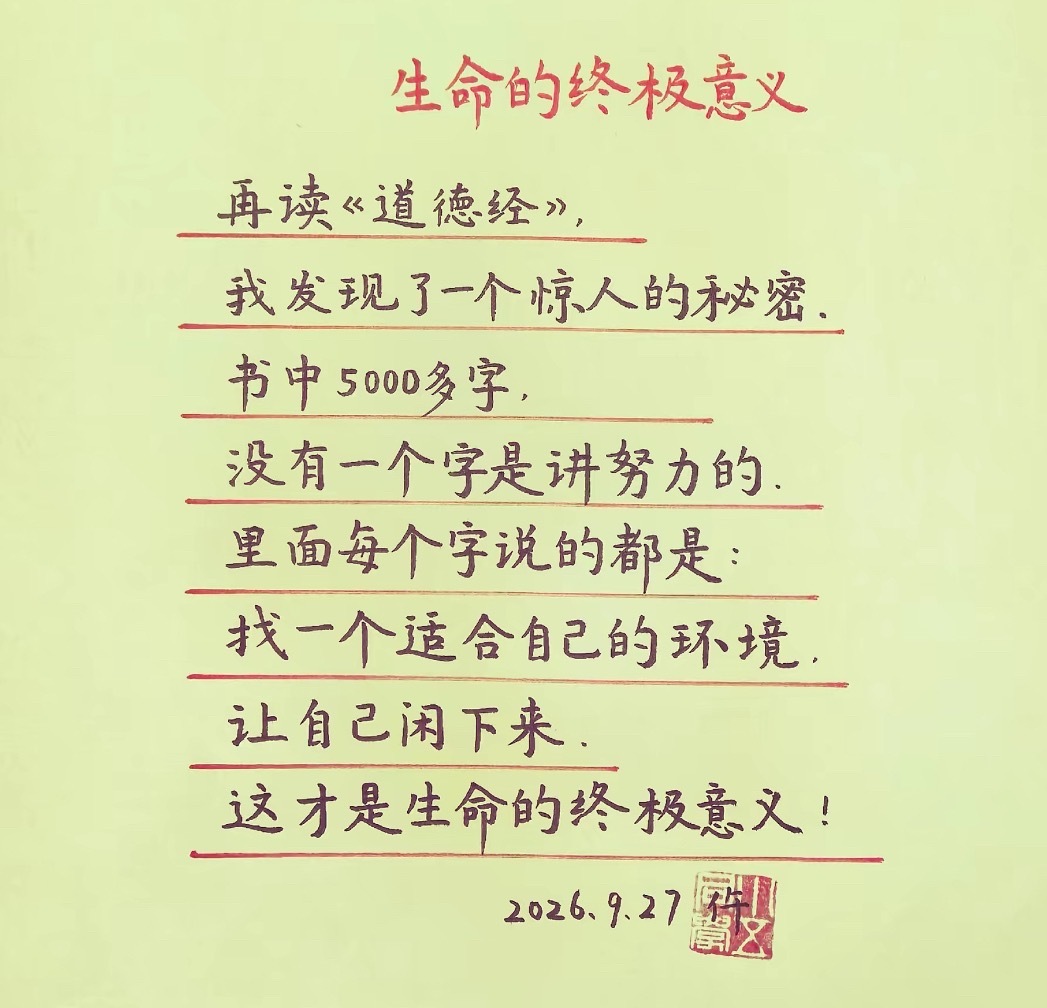 生命的终极意义
再读《道德经》,
我发现了一个惊人的秘密.
书中5000多字,
没有一个字是讲努力的.
里面每个字说的都是:
找一个适合自己的环境.
让自己闲下来.
这才是生命的终极意义!
2026.9.27 仵